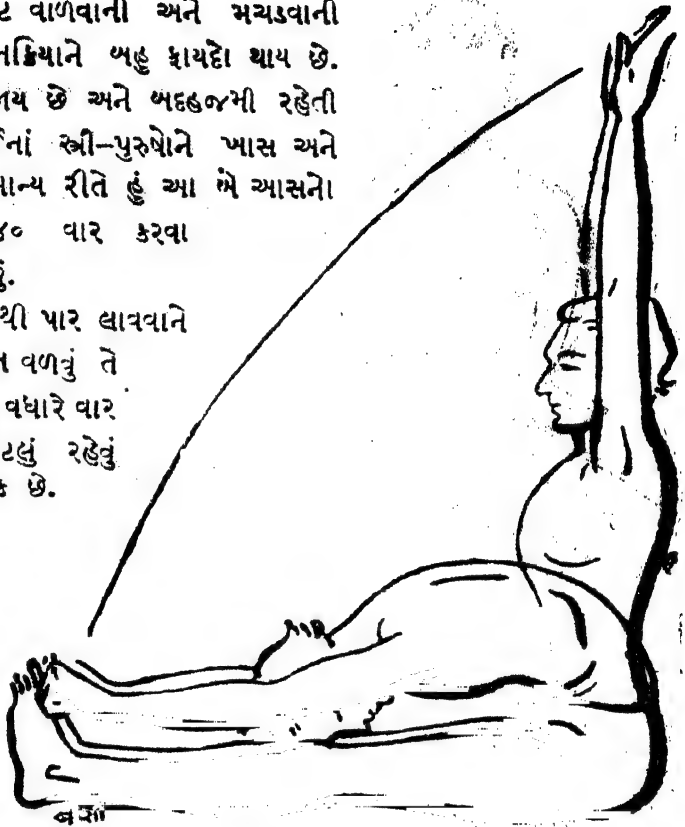 વાળવાની અને મચડવાની
બહુ ફાયદો થાય છે.
છે અને બદહજમી રહેતી
સ્ત્રી-પુરુષોને ખાસ અને
રીતે હું આ બે આસનો
૪૦ વાર કરવા
પાર લાવવાને
વળવું તે
વધારે વાર
રહેવું
છે.